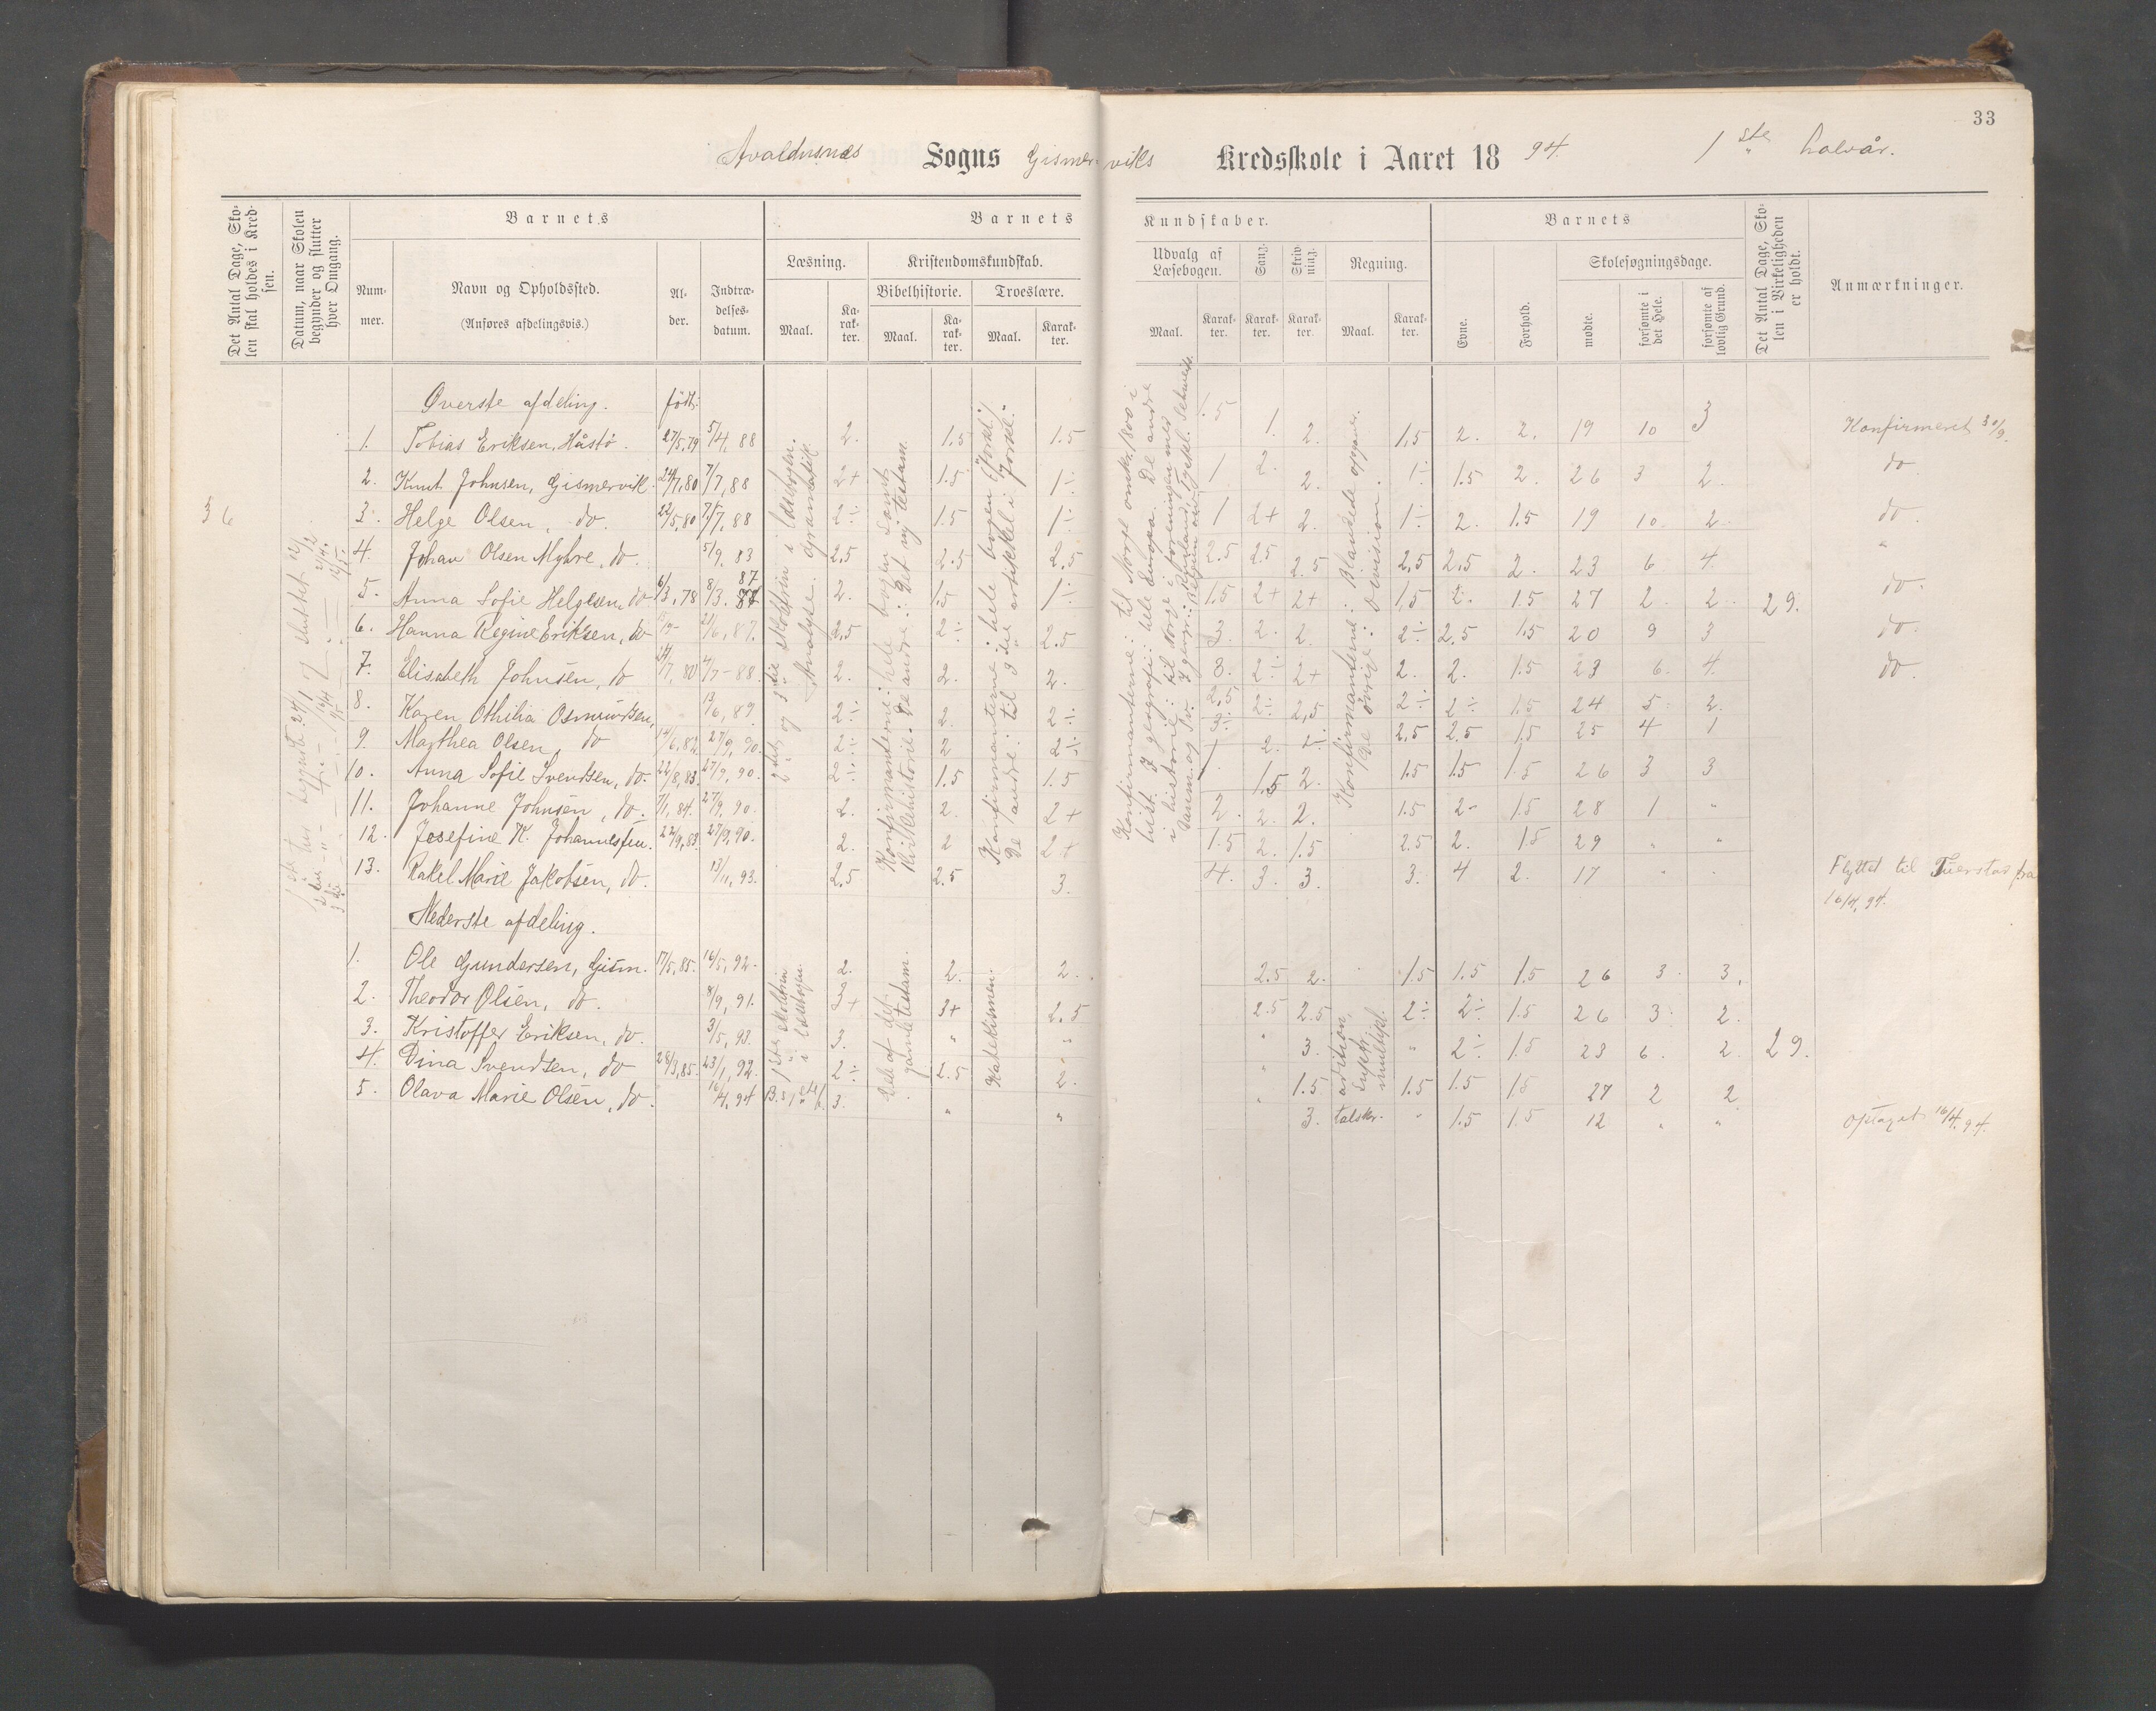 33
Avaldsnes Sogns Gismerviks Kredsskole i Aaret 1894. 1ste halvår.
Det Antal Dage, Skolen skal holdes i Kredsen.
Datum, naar Skolen begynder og slutter hver Omgang.
Barnets
Barnets Kundskaber.
Barnets
Det Antal Dage, Skolen i Virkeligheden er holdt.
Anmærkninger.
Nummer.
Navn og Opholdssted.
(Anføres afdelingsvis.)
Alder.
Indtrædelsesdatum.
Læsning.
Kristendomskundskab.
Bibelhistorie.
Troeslære.
Udvalg af Læsebogen.
Sang.
Skrivning.
Regning.
Evne.
Forhold.
Skolesøgningsdage.
Maal. Karakter. Maal. Karakter. Maal. Karakter. Maal. Karakter. Karakter. Karakter. Maal. Karakter.
mødte.
forsømte i det Hele.
forsømte af lovlig Grund.
36
29.
Øverste afdeling. født:
1. Tobias Eriksen, Håstø. 27/5,79 5/4, 88 2. 1.5 1.5 1.5 1. 2. 1,5 2. 2. 19 10 3 Konfirmeret 30/9.
2. Knut Johnsen, Gismervik. 24/7,80 7/7,88 2+ 1.5 1÷ 1 2. 2. 1÷ 1.5 2. 26 3 2. do.
3. Helge Olsen, do. 22/5,80 7/7,88 2÷ 1.5 1÷ 1 2+ 2. 1÷ 2. 1.5 19 10. 2. do.
4. Johan Olsen Myhre, do. 5/9. 83 2,5 2.5 2.5 2.5 2.5 2.5 2,5 2.5 2. 23 6 4. "
5. Anna Sofie Helgesen, do 6/3,78 8/3. 87 2. 1.5 1÷ 1.5 2+ 2+ 1,5 2. 1.5 27 2. 2. do.
6. Hanna Regine Eriksen, do 21/6, 87. 2,5 2÷ 2.5 3. 2. 2. 2÷ 2.5 1.5 20 9 3 do.
7. Elisabeth Johnsen, do 24/7, 80 7/7-88. 2. 2. 2. 3. 2÷ 2+ 2. 2. 1.5 23 6. 4. do.
8. Karen Othilia Osmundsen, 13/6, 89. 2÷ 2. 2÷ 2.5 2÷ 2,5 2÷ 2÷ 1.5 24 5 2.
9. Marthea Olsen, do 14/6,82 27/9, 90. 2÷ 2 2÷ 3÷ 2. 2÷ 2.5 2.5 1.5 25 4 1
10. Anna Sofie Svendsen, do. 22/8,83 27/9, 90. 2÷ 1.5 1.5 1 1.5 2. 1.5 1.5 1.5 26 3 3
11. Johanne Johnsen, do. 7/1, 84. 27/9, 90. 2. 2. 2+ 2. 2. 2. 1.5 2- 1.5 28 1 "
12. Josefine K. Johannesen. 22/9,83. 27/9,90. 2. 2 2+ 1.5 2. 1.5 2.5 2. 1.5 29 " "
13. Rakel Marie Jakobsen, do. 13/11, 93. 2,5 2.5 3. 4. 3. 3. 3. 4 2. 17 " " Flyttet til Tuerstad fra 16/4, 94.
Nederste afdeling.
1. Ole Gundersen, Gism. 17/5,85. 16/5, 92. 2. 2. 2. 2.5 2. 1.5 1.5 1.5 26 3. 3.
2. Theodor Olsen, do. 8/9, 91. 3+ 3+ 2.5 2.5 2.5 2÷ 2÷ 1.5 26 3. 2.
3. Kristoffer Eriksen, do. 3/5, 93. 3. " " " 3. " 2÷ 1.5 23 6. 2. 29.
4. Dina Svendsen, do 28/3,85. 23/1, 92. 2÷ 2.5 2. " 1.5 1.5 1.5 1.5 27 2 2
5. Olava Marie Olsen, do. 16/4, 94 3. " " " 3. talskr. " 1.5 1.5 12 " " Optaget 16/4, 94.
2det og 3die skoletrin i læsebogen. Analyse. Gramatik.
Konfirmanterne: hele bogen samt Kirkehistorie. De andre: Det ny testam.
Konfirmanterne: hele bogen (Forkl.) De andre: til 3die artikkel i "forkl."
Konfirmanterne: til Norge omkr. 1800 i hist. I geografi: hele Europa. De andre i historie: til Norge i foreningen med Danm. og Sv. I geogr.:
Konfirmanterne: Blandede opgaver. De øvrige: Division.
1ste skoletrin i læsebogen.
Dele af det gamle testam.
Katekismen.
addition, subtr. multipl.